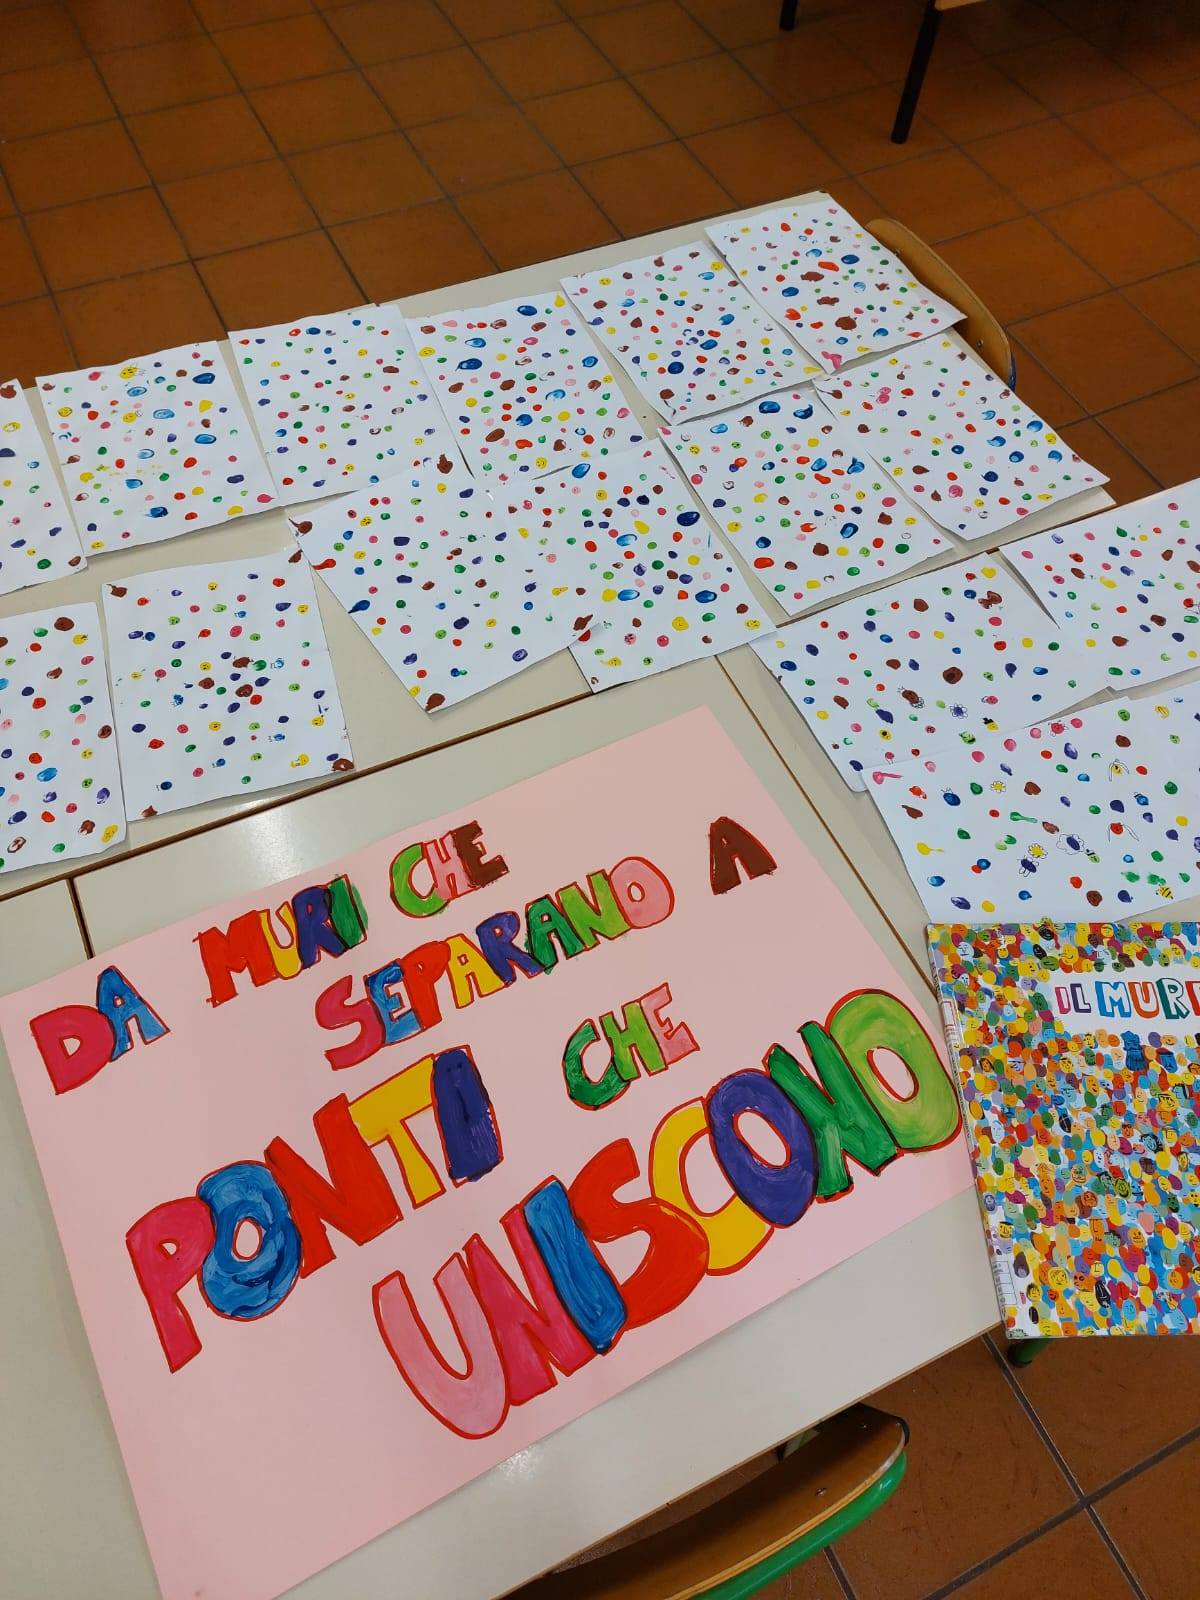 DA MURI CHE
SEPARANO A
PONTI CHE
UNISCONO
IL MUR